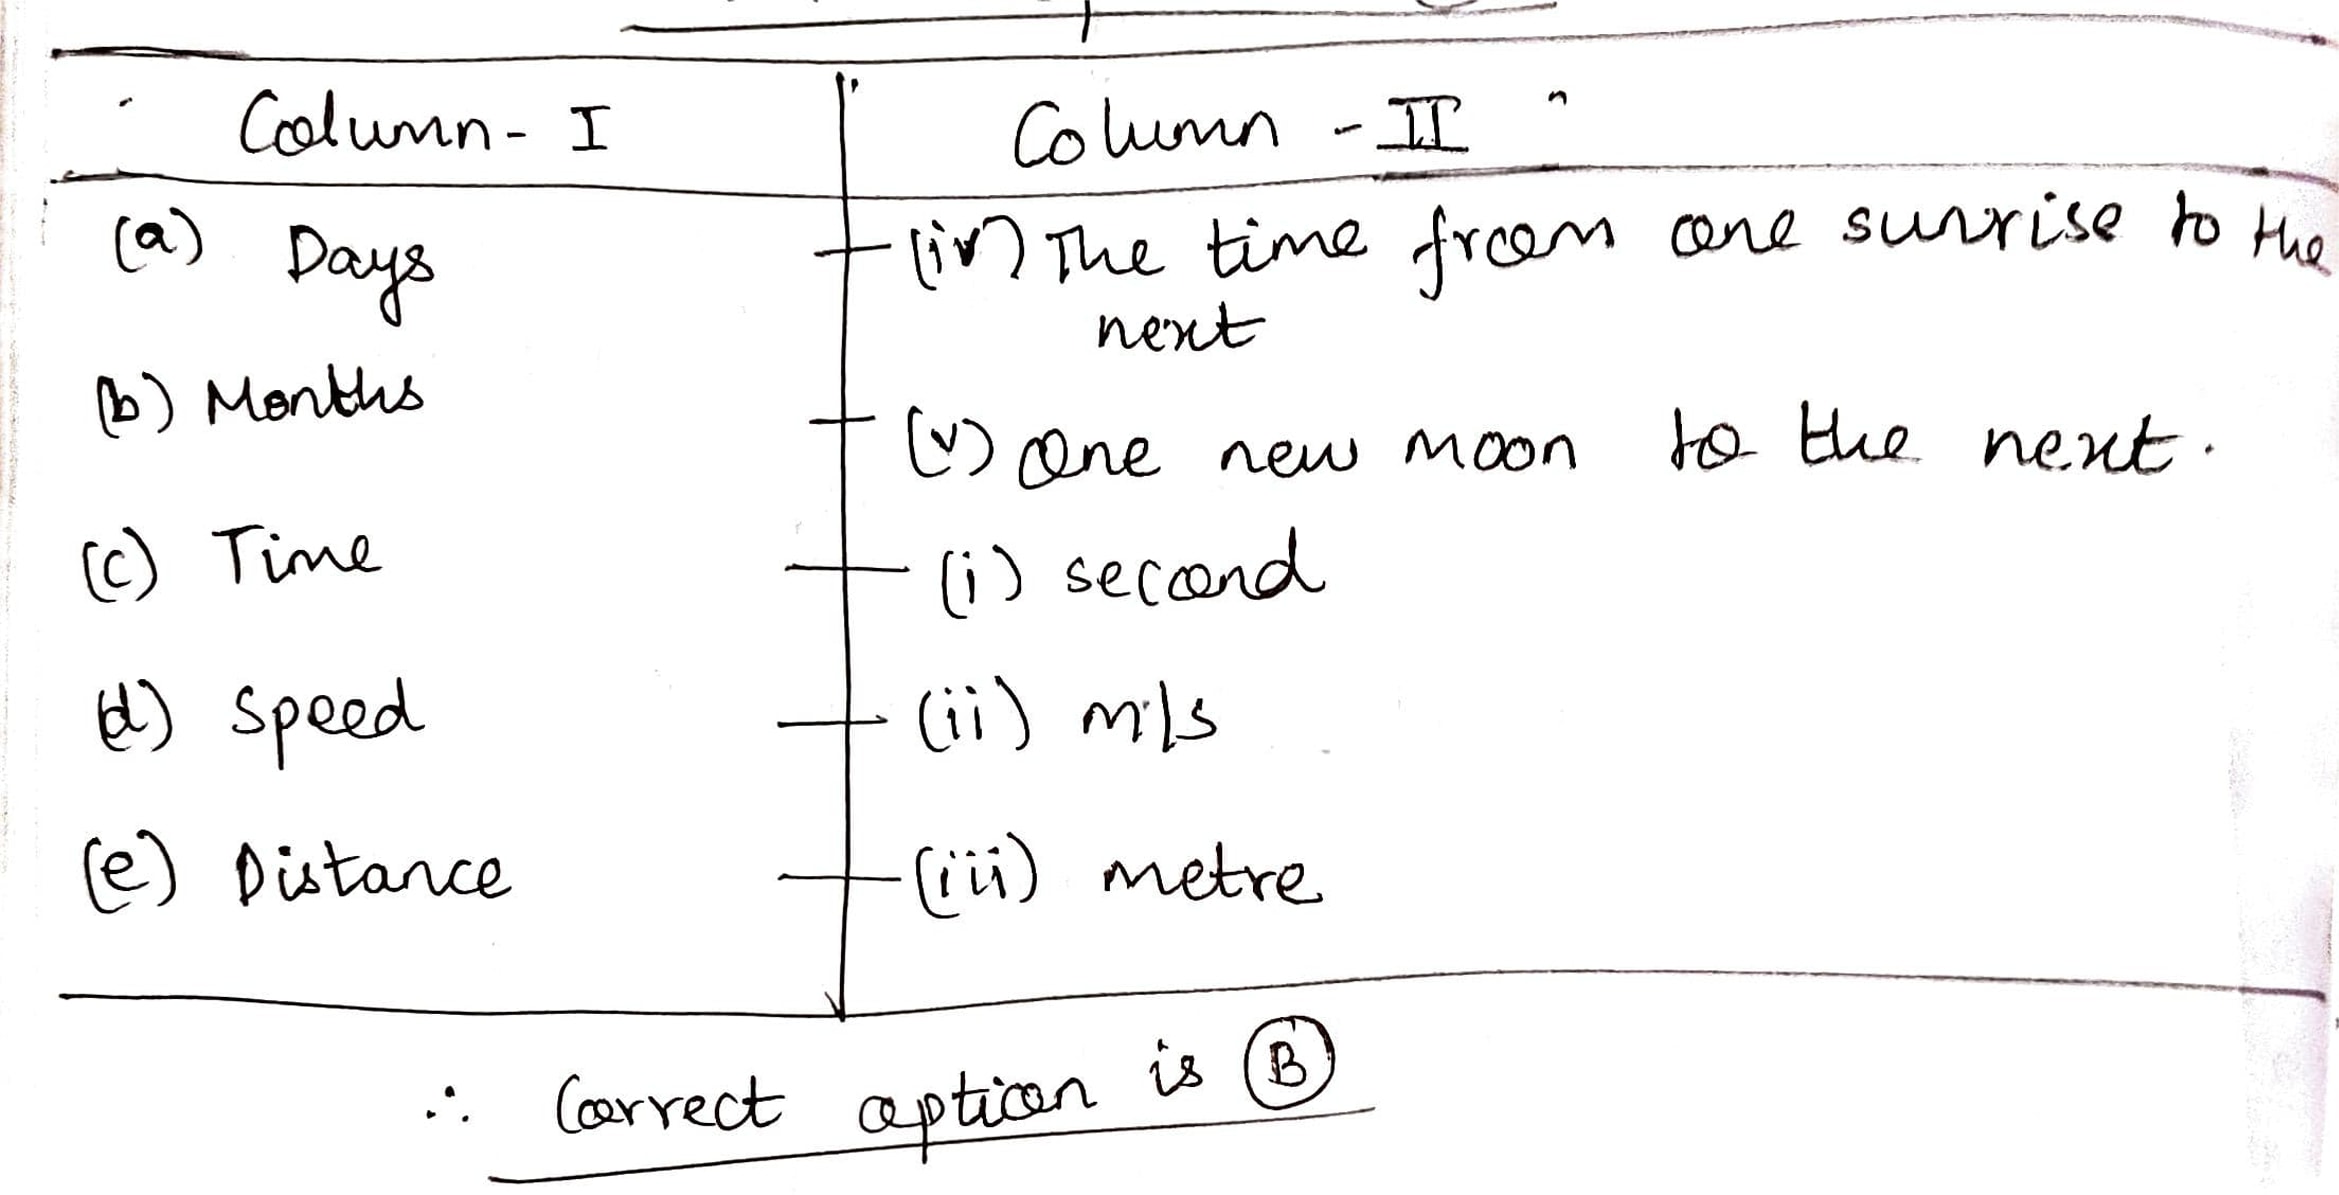 Column - I
Column - II
(a) Days
(iv) The time from one sunrise to the
next
(b) Months
(v) One new moon to the next.
(c) Time
(i) second
(d) speed
(ii) m/s
(e) Distance
(iii) metre
∴ Correct option is B